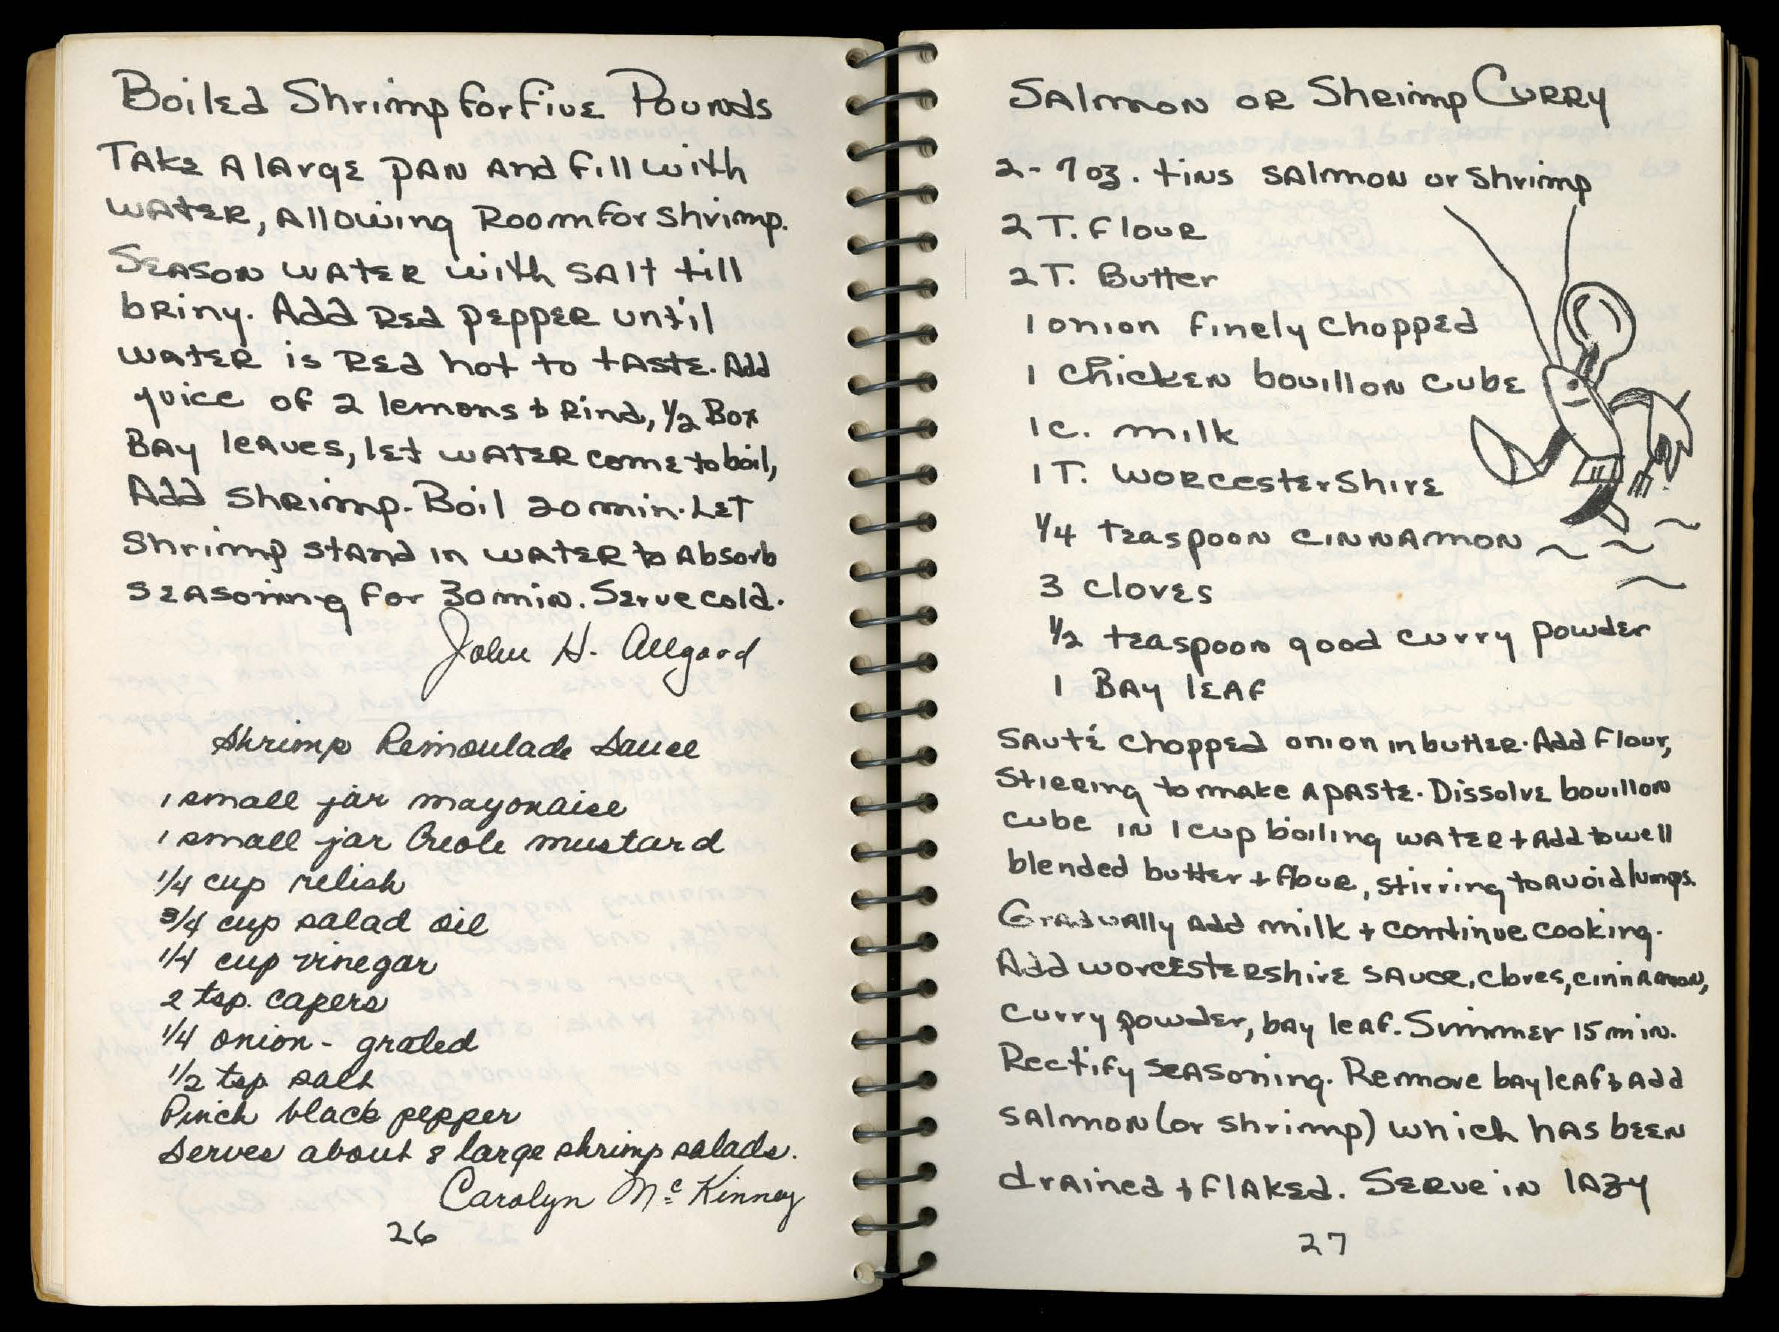 Boiled Shrimp for Five Pounds
Take a large pan and fill with
water, allowing room for shrimp.
Season water with salt till
briny. Add red pepper until
water is red hot to taste. Add
juice of 2 lemons & rind, 1/2 Box
Bay leaves, let water come to boil,
Add shrimp. Boil 20 min. Let
shrimp stand in water to absorb
seasoning for 30 min. Serve cold.
John H. Allgood
Shrimp Remoulade Sauce
1 small jar mayonaise
1 small jar Creole mustard
1/4 cup relish
3/4 cup salad oil
1/4 cup vinegar
2 tsp. capers
1/4 onion - grated
1/2 tsp salt
Pinch black pepper
Serves about 8 large shrimp salads.
Carolyn McKinney
26
Salmon or Shrimp Curry
2 - 7 oz. tins salmon or shrimp
2 T. flour
2 T. Butter
1 onion finely chopped
1 chicken bouillon cube
1 c. milk
1 T. Worcestershire
1/4 teaspoon cinnamon
3 cloves
1/2 teaspoon good curry powder
1 Bay leaf
Sauté chopped onion in butter. Add flour,
stirring to make a paste. Dissolve bouillon
cube in 1 cup boiling water + add to well
blended butter + flour, stirring to avoid lumps.
Gradually add milk + continue cooking.
Add worcestershire sauce, cloves, cinnamon,
curry powder, bay leaf. Simmer 15 min.
Rectify seasoning. Remove bay leaf & add
salmon (or shrimp) which has been
drained + flaked. Serve in lazy
27